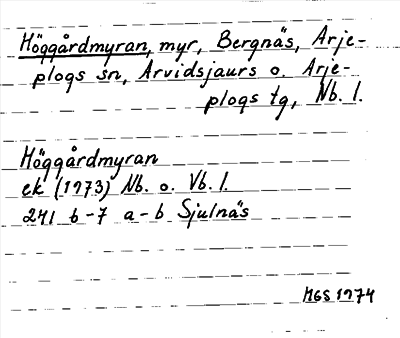 Höggårdmyran, myr, Bergnäs, Arje-
plogs sn, Arvidsjaurs o. Arje-
plogs tg, Nb. l.
Höggårdmyran
ek (1973) Nb. o. Vb. l.
241 b-7 a-b Sjulnäs
MGS 1974